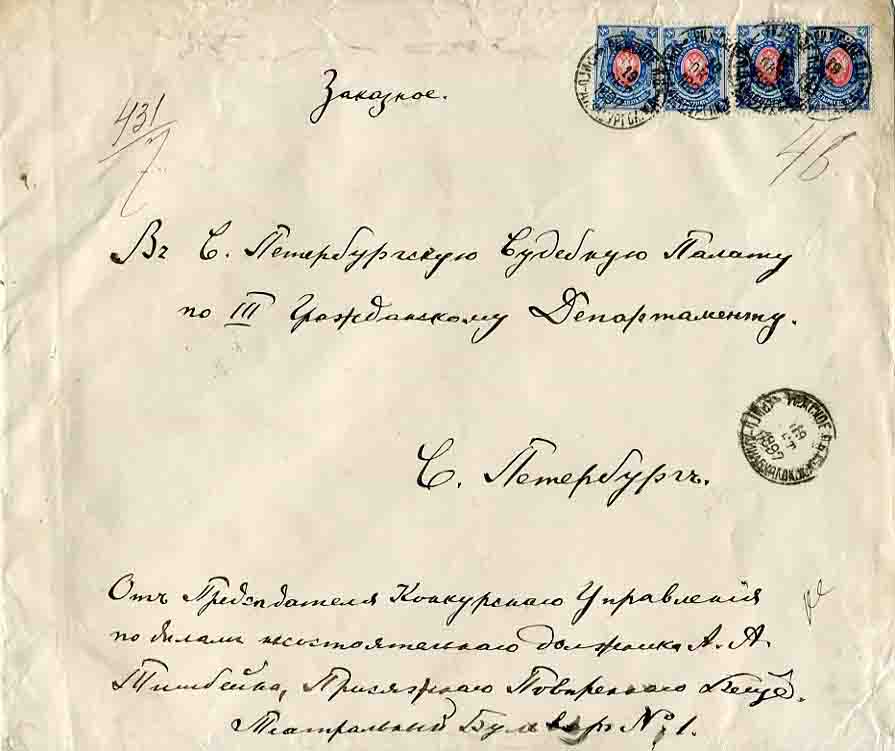 Заказное.
431
7
46.
Въ С. Петербургскую Судебную Палату
по III Гражданскому Департаменту.
1897
С. Петербургъ.
Отъ Предсѣдателя Конкурснаго Управленія
по дѣламъ несостоятельнаго должника А. А.
Присяжнаго Повѣреннаго
Театральный Бульваръ № 1.